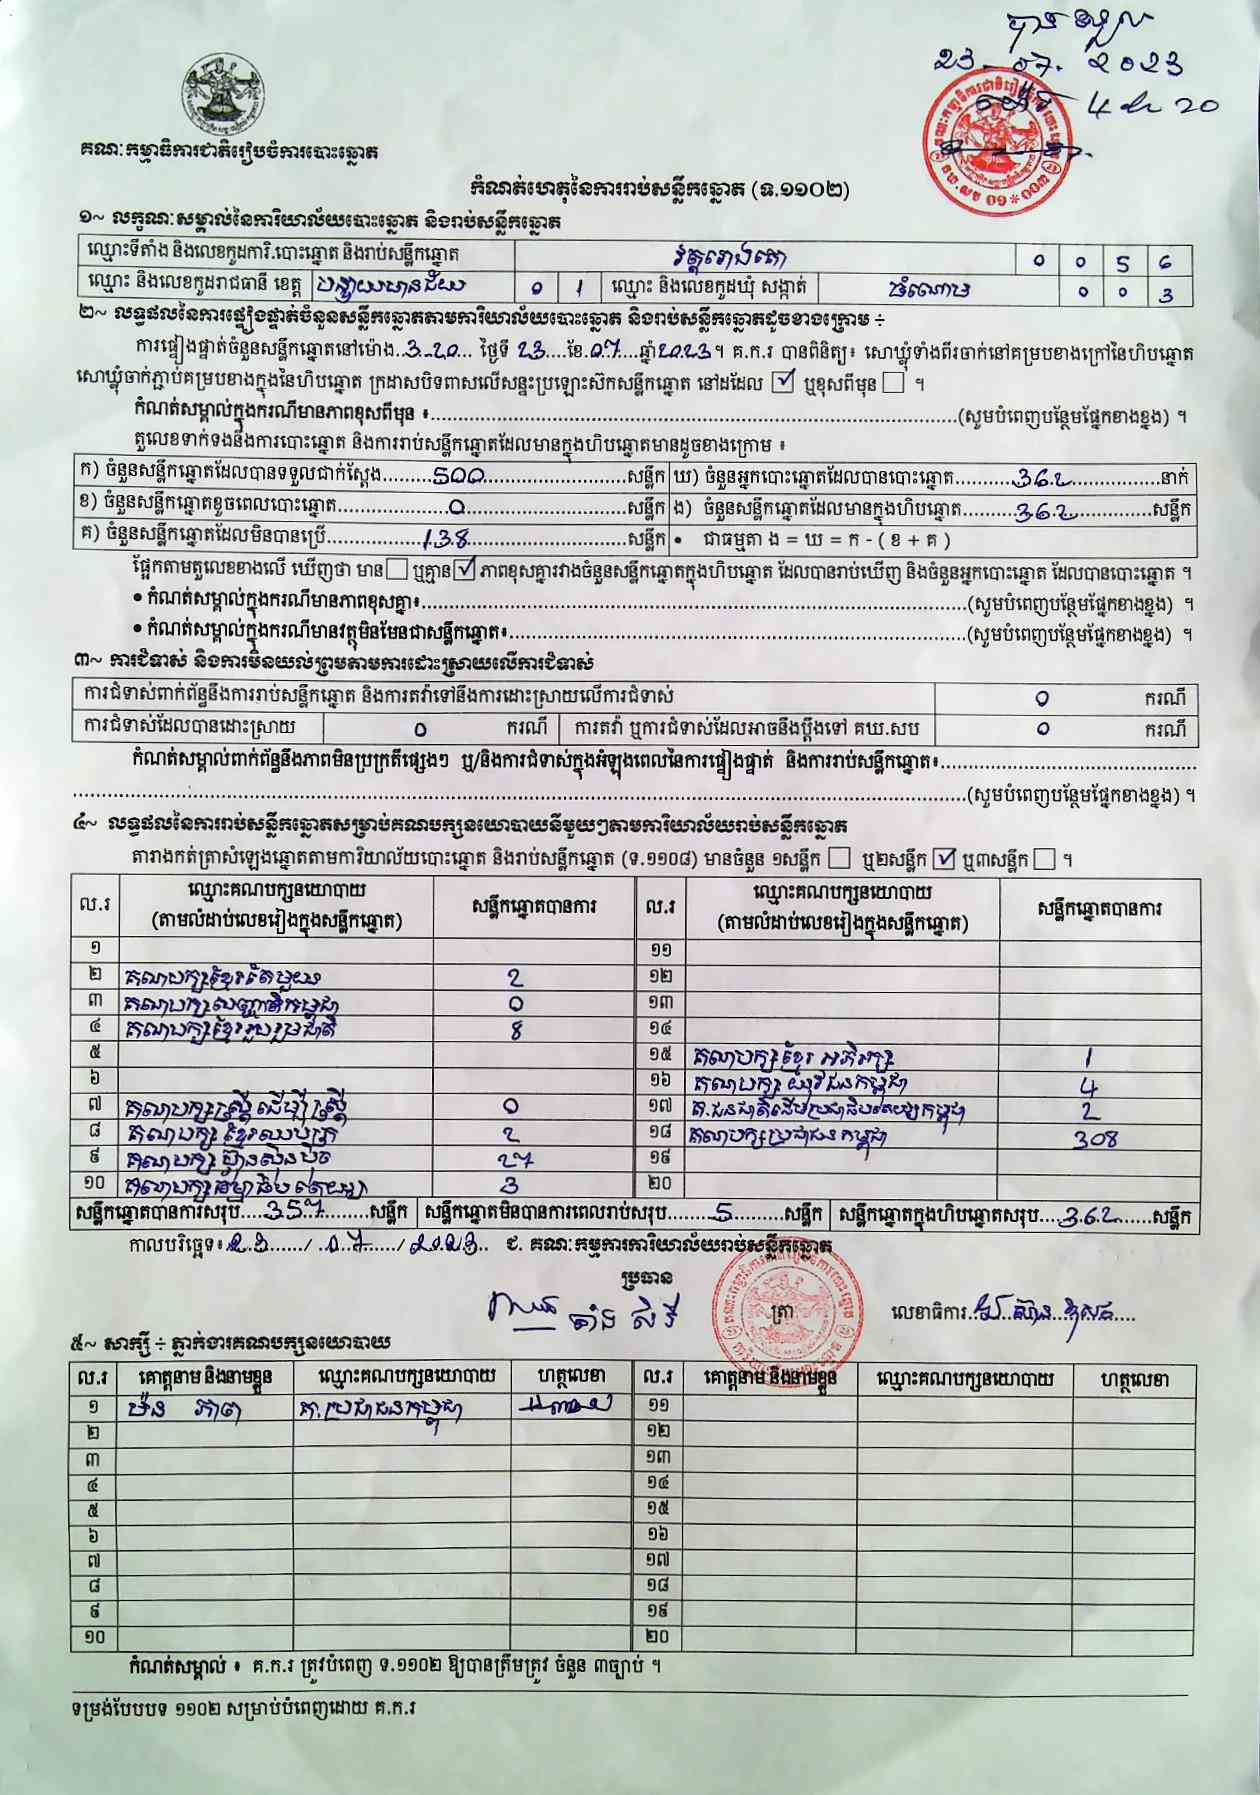 បានទទួល
23-07-2023
ម៉ោង 4 និង 20
គណៈកម្មាធិការជាតិរៀបចំការបោះឆ្នោត
កំណត់ហេតុនៃការរាប់សន្លឹកឆ្នោត (ទ.១១០២)
១~ លក្ខណៈសម្គាល់នៃការិយាល័យបោះឆ្នោត និងរាប់សន្លឹកឆ្នោត
ឈ្មោះទីតាំង និងលេខកូដការិ.បោះឆ្នោត និងរាប់សន្លឹកឆ្នោត វត្តរោងគោ 0 0 5 6
ឈ្មោះ និងលេខកូដរាជធានី ខេត្ត បន្ទាយមានជ័យ 0 1 ឈ្មោះ និងលេខកូដឃុំ សង្កាត់ ចំណោម 0 0 3
២~ លទ្ធផលនៃការផ្ទៀងផ្ទាត់ចំនួនសន្លឹកឆ្នោតតាមការិយាល័យបោះឆ្នោត និងរាប់សន្លឹកឆ្នោតដូចខាងក្រោម ÷
ការផ្ទៀងផ្ទាត់ចំនួនសន្លឹកឆ្នោតនៅម៉ោង..3-20... ថ្ងៃទី 23....ខែ.07....ឆ្នាំ2023។ គ.ក.រ បានពិនិត្យ៖ សោឃ្លុំទាំងពីរចាក់នៅគម្របខាងក្រៅនៃហិបឆ្នោត
សោឃ្លុំចាក់ភ្ជាប់គម្របខាងក្នុងនៃហិបឆ្នោត ក្រដាសបិទពាសលើសន្ទះប្រឡោះស៊កសន្លឹកឆ្នោត នៅដដែល ☑ ឬខុសពីមុន ☐ ។
កំណត់សម្គាល់ក្នុងករណីមានភាពខុសពីមុន ៖........(សូមបំពេញបន្ថែមផ្នែកខាងខ្នង) ។
តួលេខទាក់ទងនឹងការបោះឆ្នោត និងការរាប់សន្លឹកឆ្នោតដែលមានក្នុងហិបឆ្នោតមានដូចខាងក្រោម ៖
ក) ចំនួនសន្លឹកឆ្នោតដែលបានទទួលជាក់ស្តែង........500........សន្លឹក ឃ) ចំនួនអ្នកបោះឆ្នោតដែលបានបោះឆ្នោត........362........នាក់
ខ) ចំនួនសន្លឹកឆ្នោតខូចពេលបោះឆ្នោត........0........សន្លឹក ង) ចំនួនសន្លឹកឆ្នោតដែលមានក្នុងហិបឆ្នោត........362........សន្លឹក
គ) ចំនួនសន្លឹកឆ្នោតដែលមិនបានប្រើ........138........សន្លឹក • ជាធម្មតា ង = ឃ = ក - ( ខ + គ )
ផ្អែកតាមតួលេខខាងលើ ឃើញថា មាន ☐ ឬគ្មាន ☑ ភាពខុសគ្នារវាងចំនួនសន្លឹកឆ្នោតក្នុងហិបឆ្នោត ដែលបានរាប់ឃើញ និងចំនួនអ្នកបោះឆ្នោត ដែលបានបោះឆ្នោត ។
• កំណត់សម្គាល់ក្នុងករណីមានភាពខុសគ្នា៖........(សូមបំពេញបន្ថែមផ្នែកខាងខ្នង) ។
• កំណត់សម្គាល់ក្នុងករណីមានវត្ថុមិនមែនជាសន្លឹកឆ្នោត៖........(សូមបំពេញបន្ថែមផ្នែកខាងខ្នង) ។
៣~ ការជំទាស់ និងការមិនយល់ព្រមតាមការដោះស្រាយលើការជំទាស់
ការជំទាស់ពាក់ព័ន្ធនឹងការរាប់សន្លឹកឆ្នោត និងការតវ៉ាទៅនឹងការដោះស្រាយលើការជំទាស់ 0 ករណី
ការជំទាស់ដែលបានដោះស្រាយ 0 ករណី ការតវ៉ា ឬការជំទាស់ដែលអាចនឹងប្តឹងទៅ គឃ.សប 0 ករណី
កំណត់សម្គាល់ពាក់ព័ន្ធនឹងភាពមិនប្រក្រតីផ្សេងៗ ឬ/និងការជំទាស់ក្នុងអំឡុងពេលនៃការផ្ទៀងផ្ទាត់ និងការរាប់សន្លឹកឆ្នោត៖........
........(សូមបំពេញបន្ថែមផ្នែកខាងខ្នង) ។
៤~ លទ្ធផលនៃការរាប់សន្លឹកឆ្នោតសម្រាប់គណបក្សនយោបាយនីមួយៗតាមការិយាល័យរាប់សន្លឹកឆ្នោត
តារាងកត់ត្រាសំឡេងឆ្នោតតាមការិយាល័យបោះឆ្នោត និងរាប់សន្លឹកឆ្នោត (ទ.១១០៨) មានចំនួន ១សន្លឹក ☐ ឬ២សន្លឹក ☑ ឬ៣សន្លឹក ☐ ។
ល.រ ឈ្មោះគណបក្សនយោបាយ (តាមលំដាប់លេខរៀងក្នុងសន្លឹកឆ្នោត) សន្លឹកឆ្នោតបានការ ល.រ ឈ្មោះគណបក្សនយោបាយ (តាមលំដាប់លេខរៀងក្នុងសន្លឹកឆ្នោត) សន្លឹកឆ្នោតបានការ
១ ១១
២ គណបក្សខ្មែរតែមួយ 2 ១២
៣ គណបក្សសញ្ជាតិកម្ពុជា 0 ១៣
៤ គណបក្សខ្មែររួបរួមជាតិ 8 ១៤
៥ ១៥ គណបក្សខ្មែរ អភិរក្ស 1
៦ ១៦ គណបក្ស យុវជនកម្ពុជា 4
៧ គណបក្សស្ត្រីដើម្បីស្ត្រី 0 ១៧ គ.ជនជាតិដើមប្រជាធិបតេយ្យកម្ពុជា 2
៨ គណបក្ស ខ្មែរឈប់ក្រ 2 ១៨ គណបក្សប្រជាជនកម្ពុជា 308
៩ គណបក្ស ហ៊្វុនស៊ិនប៉ិច 27 ១៩
១០ គណបក្សធម្មាធិបតេយ្យ 3 ២០
សន្លឹកឆ្នោតបានការសរុប....357........សន្លឹក សន្លឹកឆ្នោតមិនបានការពេលរាប់សរុប.......5........សន្លឹក សន្លឹកឆ្នោតក្នុងហិបឆ្នោតសរុប...362......សន្លឹក
កាលបរិច្ឆេទ៖ 23/07/2023 ជ. គណៈកម្មការការិយាល័យរាប់សន្លឹកឆ្នោត
ប្រធាន
តាំង សិរី
ត្រា
លេខាធិការ
៥~ សាក្សី ÷ ភ្នាក់ងារគណបក្សនយោបាយ
ល.រ គោត្តនាម និងនាមខ្លួន ឈ្មោះគណបក្សនយោបាយ ហត្ថលេខា ល.រ គោត្តនាម និងនាមខ្លួន ឈ្មោះគណបក្សនយោបាយ ហត្ថលេខា
១ ម៉ន ភាព គ.ប្រជាជនកម្ពុជា ១១
២ ១២
៣ ១៣
៤ ១៤
៥ ១៥
៦ ១៦
៧ ១៧
៨ ១៨
៩ ១៩
១០ ២០
កំណត់សម្គាល់ ៖ គ.ក.រ ត្រូវបំពេញ ទ.១១០២ ឱ្យបានត្រឹមត្រូវ ចំនួន ៣ច្បាប់ ។
ទម្រង់បែបបទ ១១០២ សម្រាប់បំពេញដោយ គ.ក.រ